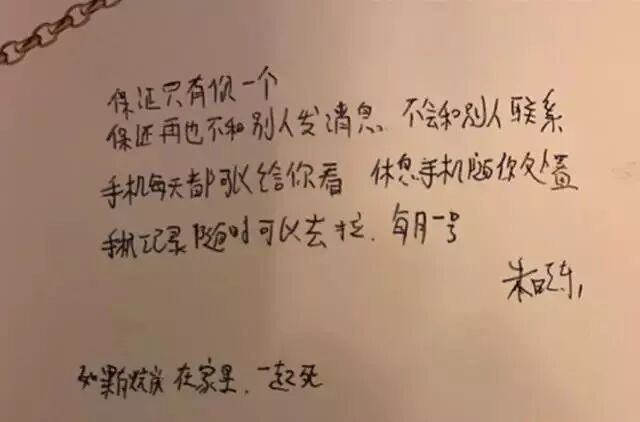 保证只有你一个
保证再也不和别人发消息 不会和别人联系
手机每天都可以给你看 休息手机随你处置
手机记录随时可以去拉. 每月一号
朱晓东
如果有炸炭 在家里. 一起死